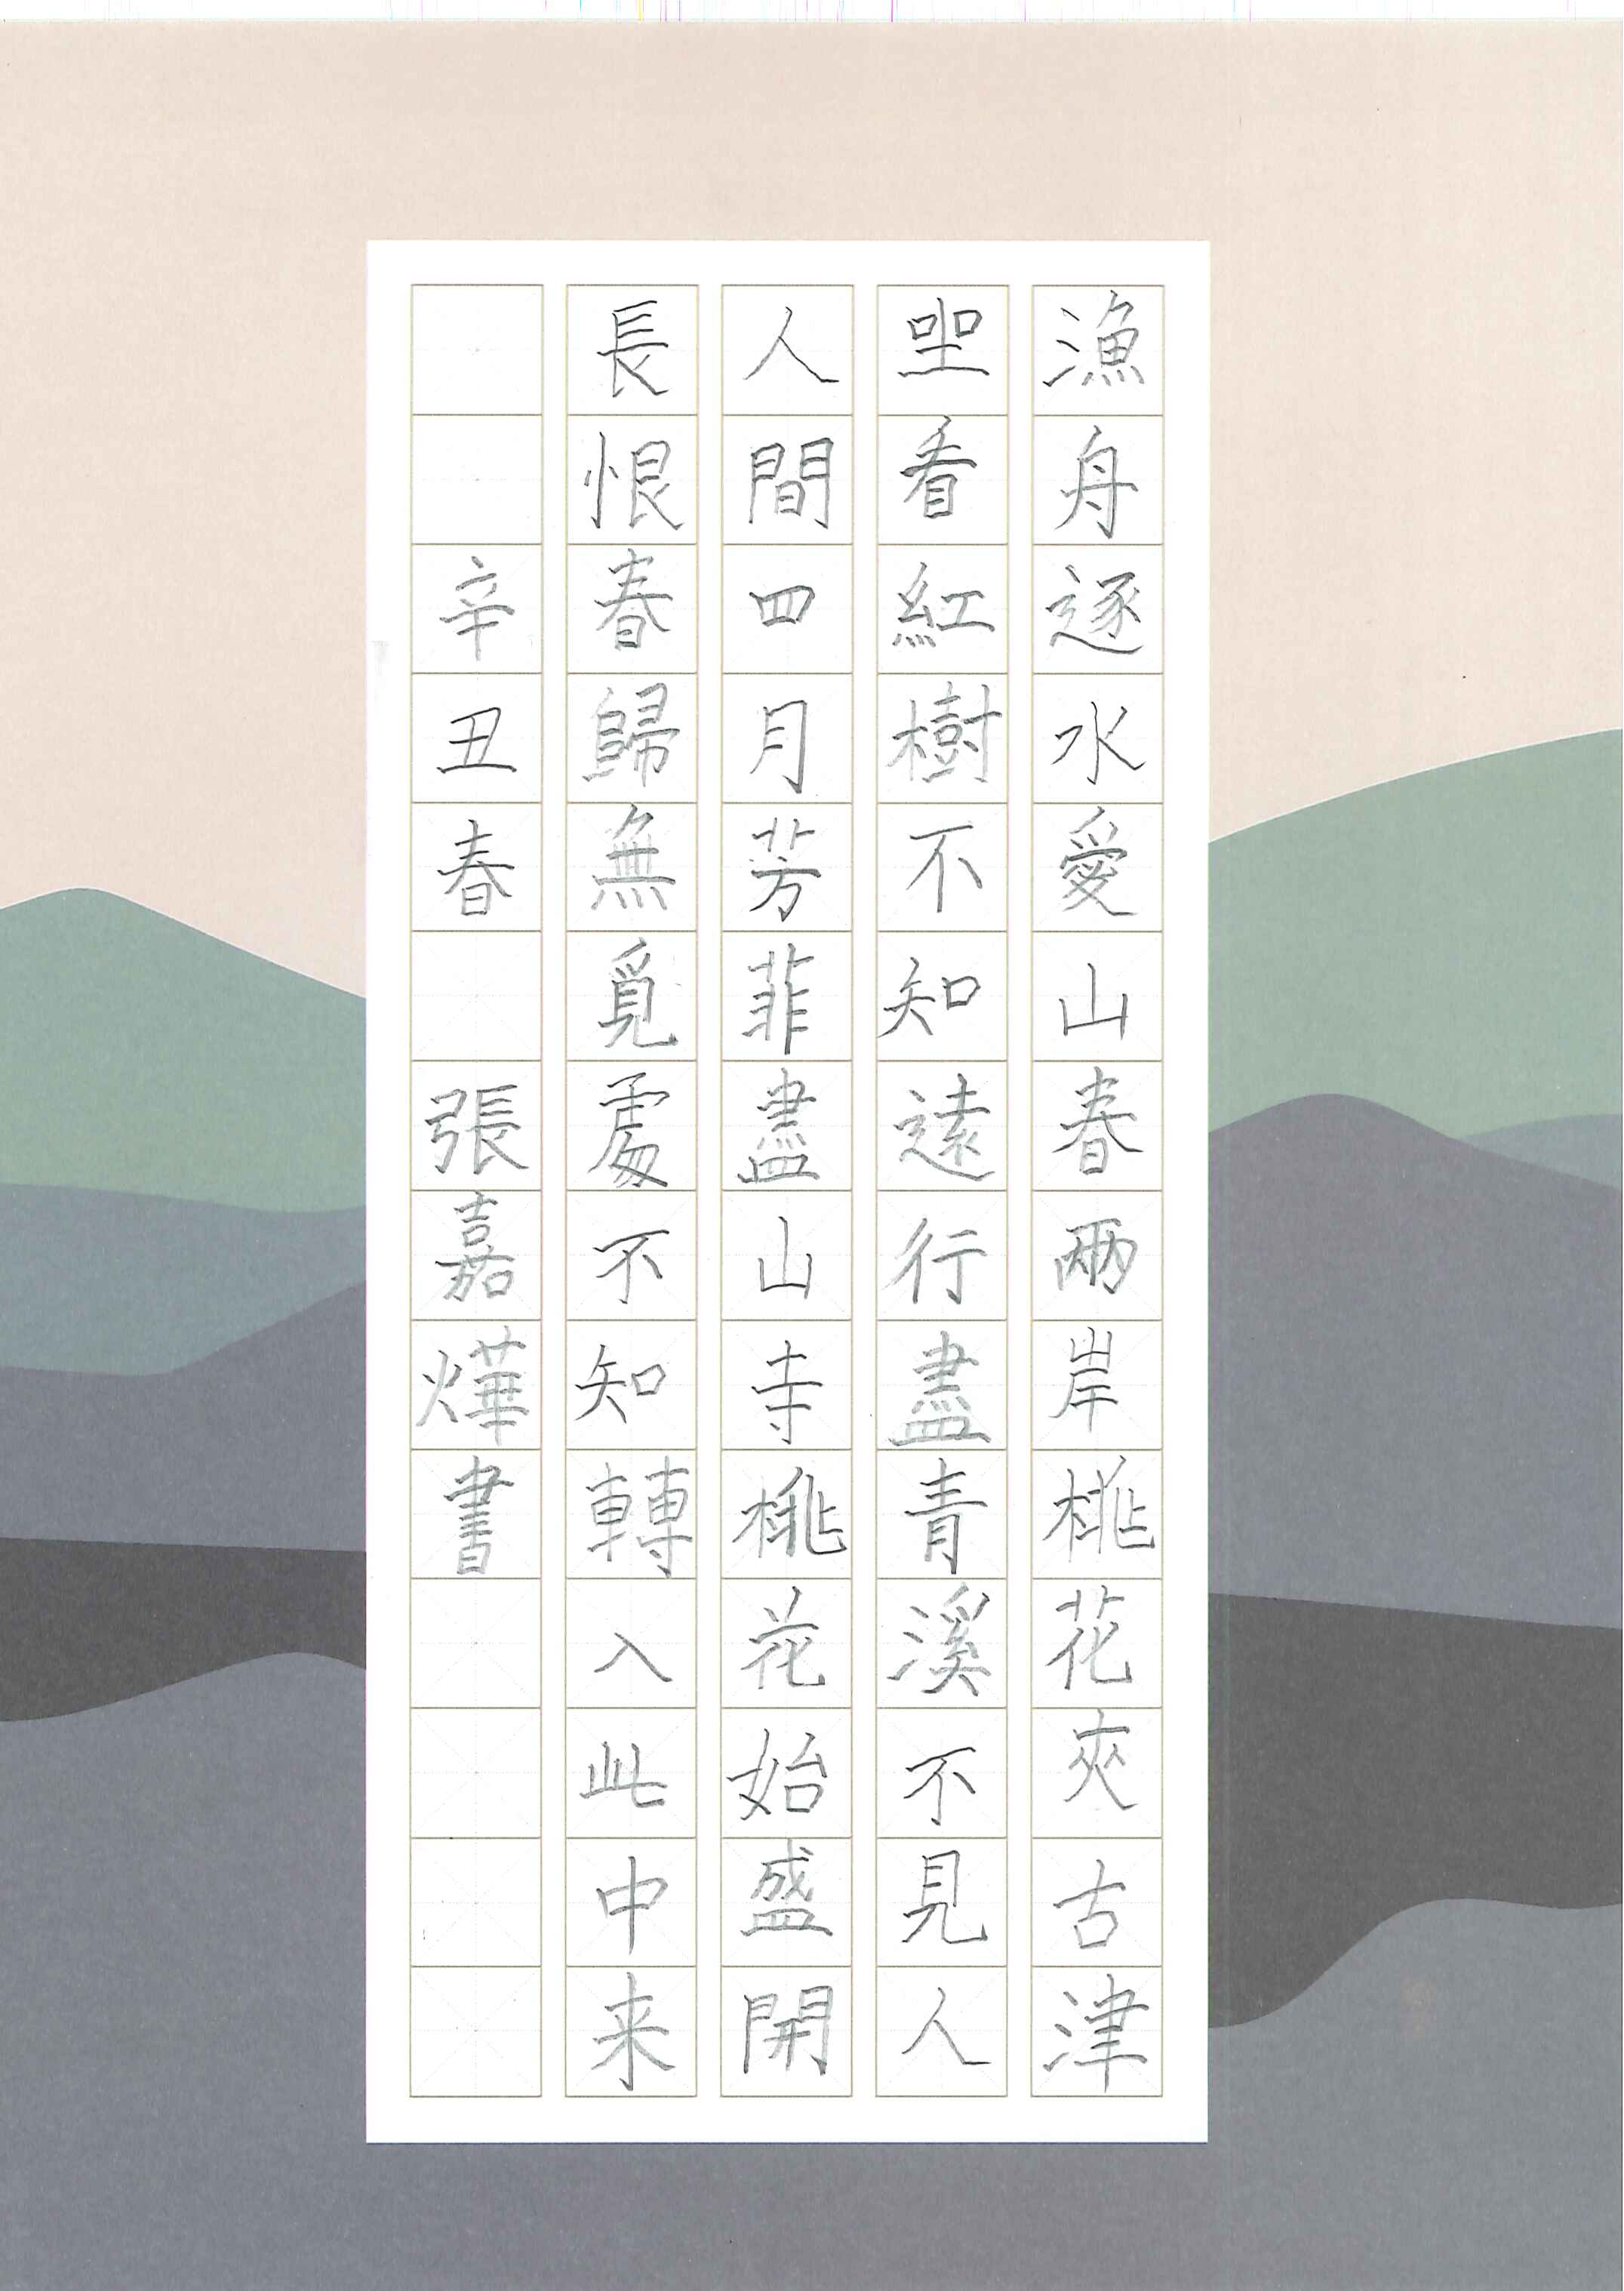 漁舟逐水愛山春兩岸桃花夾古津
坐看紅樹不知遠行盡青溪不見人
人間四月芳菲盡山寺桃花始盛開
長恨春歸無覓處不知轉入此中来
辛丑春 張嘉燁書